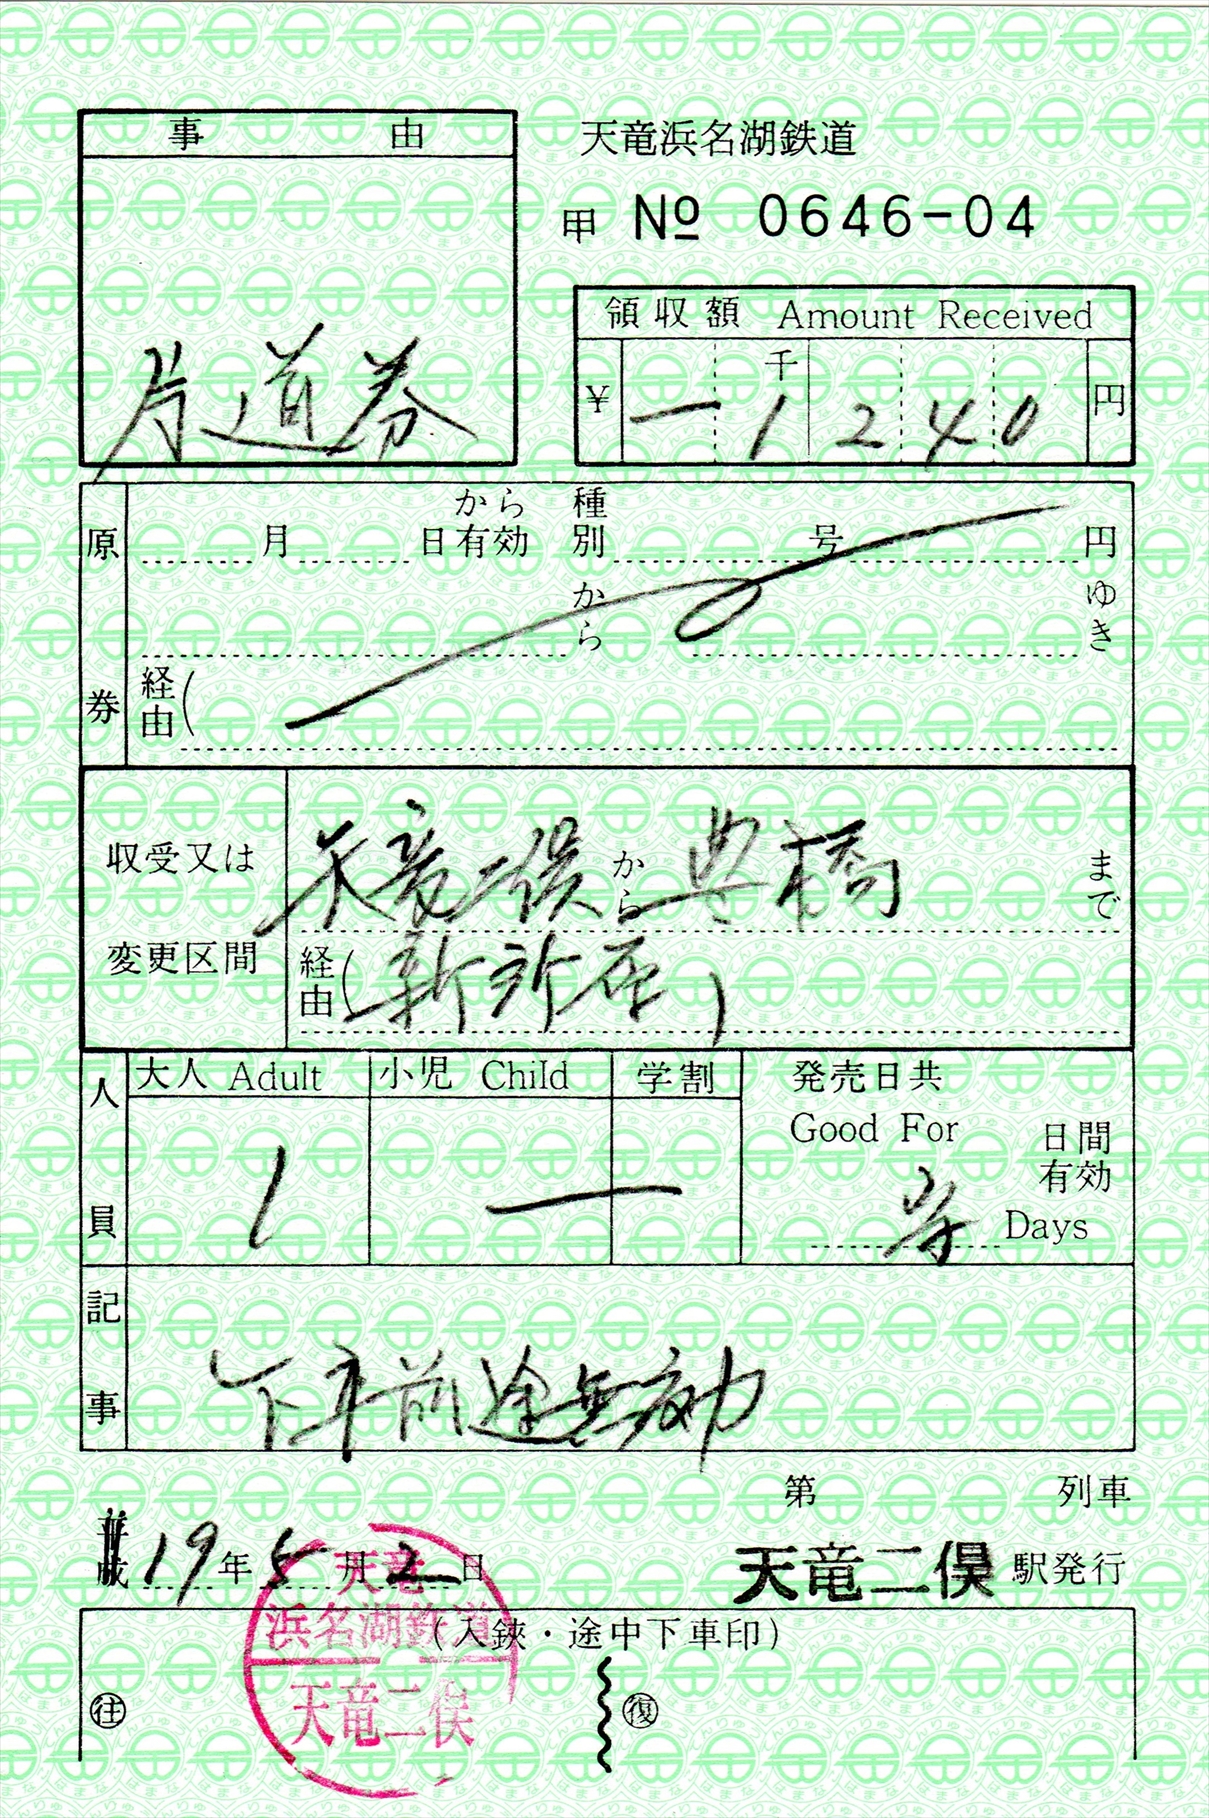 事由
片道券
天竜浜名湖鉄道
甲 № 0646-04
領収額 Amount Received
¥ 一 千1 2 4 0 円
原券
月 日から有効 種別 号 円
から ゆき
経由(
収受又は変更区間
天竜二俣から豊橋まで
経由(新所原)
人員
大人 Adult 小児 Child 学割
1 一
発売日共
Good For 日間有効
Days
記事
下車前途無効
第 列車
平成19年5月2日 天竜二俣駅発行
天竜
浜名湖鉄道
天竜二俣
(入鋏・途中下車印)
往 復